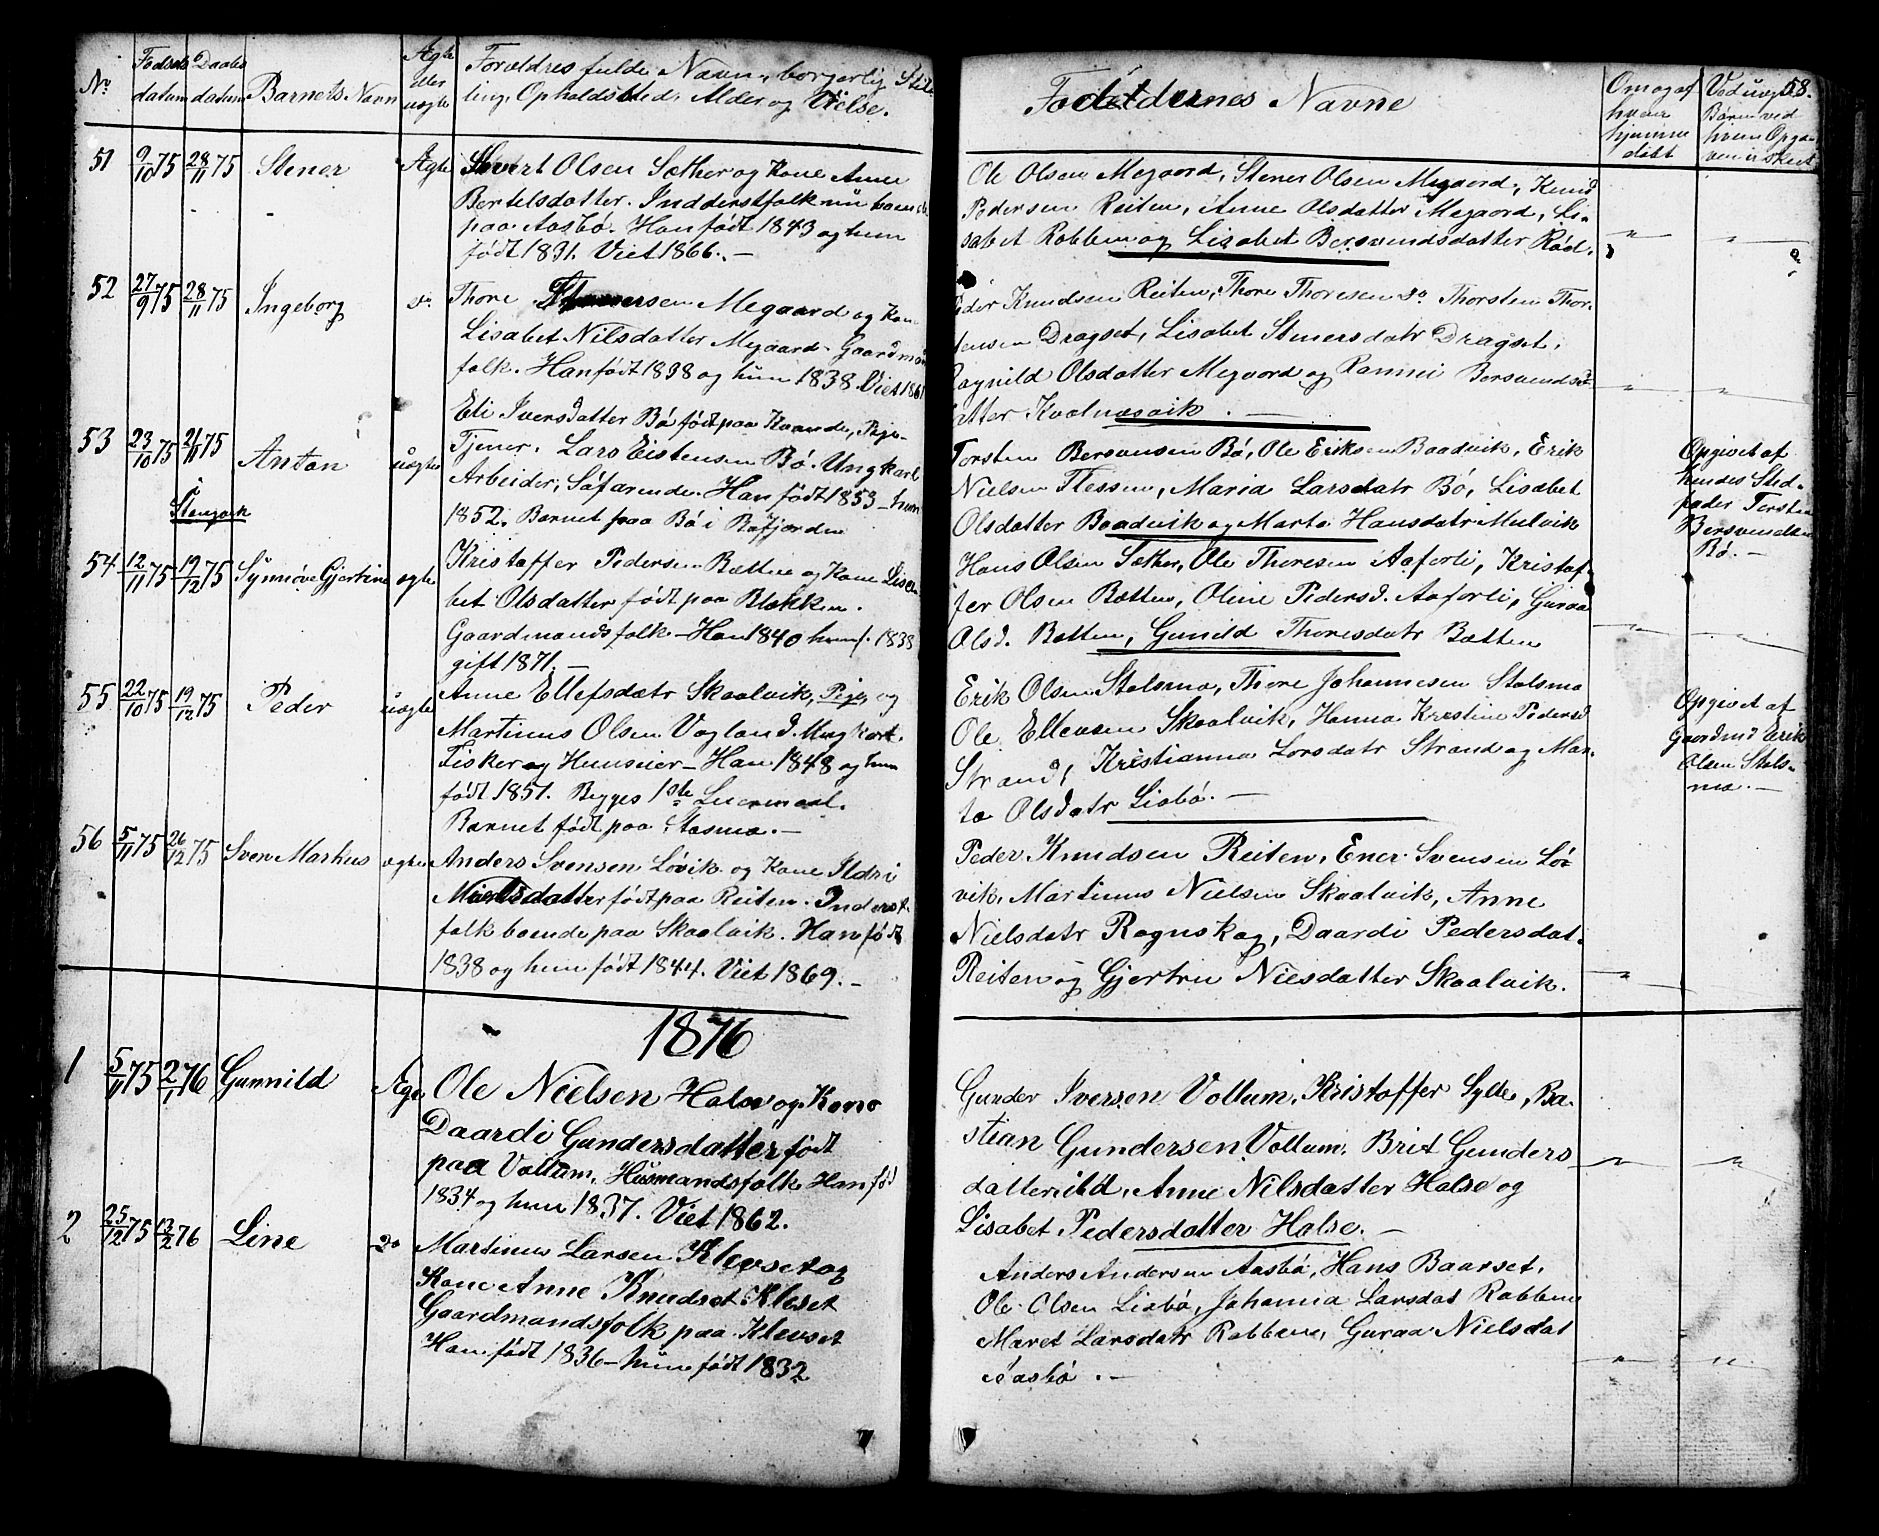 No Fødsels datum Daabs datum Barnets Navn Ægte eller uægte Forældres fulde Navn, borgerlig Stil-
ling, Opholdsted, Alder og Vielse.
51 9/10 75 28/11 75 Stener Ægte Sivert Olsen Sæther og Kone Anne
Bertelsdatter. Indderstfolk nu boende
paa Aasbø. Han født 1843 og hun
født 1831. Viet 1866. –
52 27/9 75 28/11 75 Ingeborg do Thore Megaard og Kone
Lisabet Nilsdatter Megaard. Gaardmands
folk. Han født 1838 og hun 1838. Viet 186
53 23/10 75 75 Anton uægte Eli Iversdatter Bø født paa Pige.
Tjener. Lars Eistensen Bø. Ungkarl
Arbeider, Søfarende. Han født 1853 – hun
1852. Barnet paa Bø i
Stangvik
54 12/11 75 19/12 75 Synnøve Gjertine ægte Kristoffer Pedersen Bætten og Kone Lisa-
bet Olsdatter født paa Blekken.
Gaardmandsfolk – Han 1840 hun f. 1838
gift 1871. –
55 22/10 75 19/12 75 Peder uægte Anne Ellefsdatr Skaalvik, Pige, og
Martinus Olsen Vagland. Ungkarl.
Fisker og Huuseier – Han 1848 og hun
født 1851. Begges 1ste Leiermaal.
Barnet født paa Stasma. –
56 5/11 75 26/12 75 Sven Markus ægte Anders Svensen Løvik og Kone Ildri
Nielsdatter født paa Reiten. Inderst-
folk boende paa Skaalvik. Han født
1838 og hun født 1844. Viet 1869. –
1876
1 5/11 75 2/1 76 Gunnild Ægte Ole Nielsen Halse og Kone
Daardi Gundersdatter født
paa Vollum, Husmandsfolk Han fød
1834 og hun 1837. Viet 1862.
2 25/12 75 13/2 76 Line do Martinus Larsen Klevset og
Kone Anne Knudset Kleset
Gaardmandsfolk paa Klevset
Han født 1836 – hun født 1832
Faddernes Navne
Om og af hvem hjemme døbt
Ved uægte Børn ved hvem Opgaven er skeet
58.
Ole Olsen Megaard, Stener Olsen Megaard, Knud
Pedersen Reiten, Anne Olsdatter Megaard, Li-
sabet Robben og Lisabet Bersvendsdatter Rød.
Peder Knudsen Reiten, Thore Thoresen do Thorsten Thor-
stensen Dragset, Lisabet Stenersdatr Dragset,
Ragnild Olsdatter Megaard og Ranni Bersvends-
datter Kvalnæsvik. –
Torsten Bersvensen Bø, Ole Eriksen Baadvik, Erik
Nielsen Flessen, Maria Larsdatr Bø, Lisabet
Olsdatter Baadvik og Marta Hansdatr Mulvik
Opgivet af
hendes Sted-
fader Torsten
Bersvendsen
Bø. –
Hans Olsen Sæther, Ole Thoresen Aaforli, Kristof-
fer Olsen Bætten, Oline Pedersd. Aaforli, Guraa
Olsd. Bætten, Gunild Thoresdatr Bætten
Erik Olsen Stalsma, Thore Johannesen Stalsma
Ole Ellevsen Skaalvik, Hanna Kristine Pedersd.
Strand, Kristianna Larsdatr Strand og Mar-
ta Olsdatr Liabø. –
Opgivet af
Gaardmd Erik
Olsen Stals-
ma. –
Peder Knudsen Reiten, Ener Svensen Lø-
vik, Martinus Nielsen Skaalvik, Anne
Nielsdatr Rognskog, Daardi Pedersdat.
Reiten og Gjertru Nielsdatter Skaalvik.
Gunder Iversen Vollum, Kristoffer Sylte, Ba-
stian Gundersen Vollum, Brit Gunders
datter ild, Anne Nilsdatter Halse og
Lisabet Pedersdatter Halse. –
Anders Andersen Aasbø, Hans Baarset,
Ole Olsen Liabø, Johanna Larsdat Robben
Maret Larsdatr Robben, Guraa Nielsdat
Aasbø. –